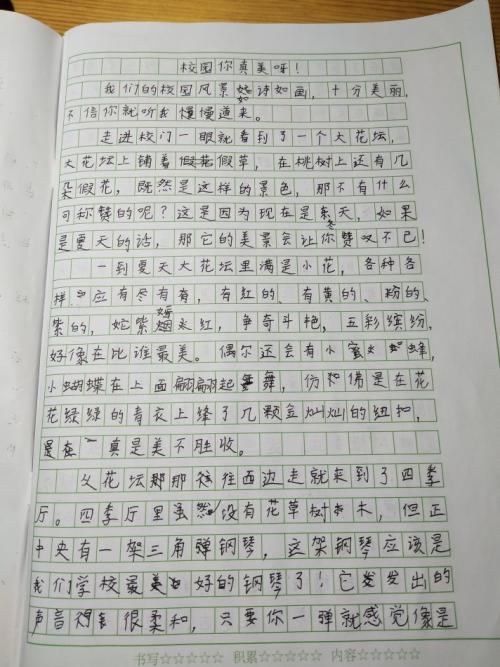 校园你真美呀！
我们的校园风景如诗如画，十分美丽，
不信你就听我慢慢道来。
走进校门一眼就看到了一个大花坛，
大花坛上铺着假草，在桃树上还有几
朵假花，既然是这样的景色，那不有什么
可称赞的呢？这是因为现在是冬天，如果
是夏天的话，那它的美景会让你赞叹不已！
一到夏天大花坛里满是小花，各种各
样应有尽有，有红的、有黄的、粉的、
紫的，姹紫嫣红，争奇斗艳，五彩缤纷，
好像在比谁最美。偶尔还会有小蜜蜂，
小蝴蝶在上面翩翩起舞，仿佛是在花
花绿绿的青衣上缝了几颗金灿灿的纽扣，
真是美不胜收。
从花坛那往西边走就来到了四季
厅。四季厅里虽然没有花草树木，但正
中央有一架三角钢琴，这架钢琴应该是
我们学校最好的钢琴了！它发出的
声音很柔和，只要你一弹就感觉像是
书写☆☆☆☆☆ 积累☆☆☆☆☆ 内容☆☆☆☆☆